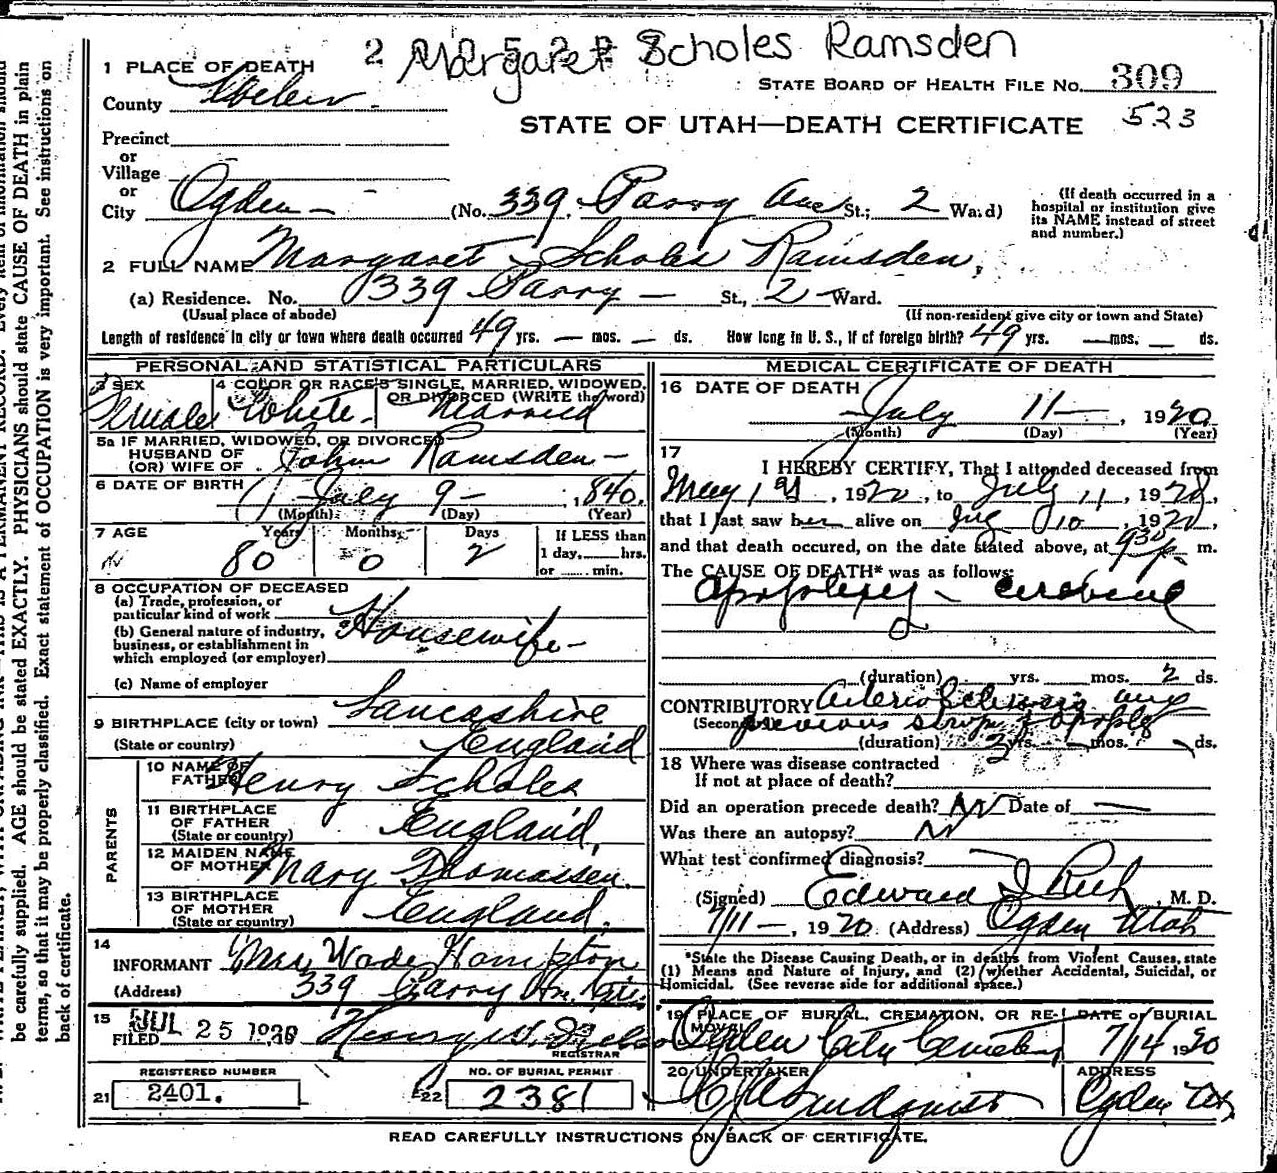 2 Margaret Scholes Ramsden
1 PLACE OF DEATH
STATE BOARD OF HEALTH FILE NO. 309
County Weber.
STATE OF UTAH—DEATH CERTIFICATE 523
Precinct
or
Village
or
City Ogden — (No. 339. Parry Ave St.; 2 Ward)
(If death occurred in a hospital or institution give its NAME instead of street and number.)
2 FULL NAME Margaret Scholes Ramsden,
(a) Residence. No. 339 Parry — St., 2 Ward.
(Usual place of abode) (If non-resident give city or town and State)
Length of residence in city or town where death occurred 49 yrs. — mos. — ds. How long in U. S., if of foreign birth? 49 yrs. — mos. — ds.
PERSONAL AND STATISTICAL PARTICULARS
3 SEX 4 COLOR OR RACE 5 SINGLE, MARRIED, WIDOWED, OR DIVORCED (WRITE the word)
Female White Married
5a IF MARRIED, WIDOWED, OR DIVORCED
HUSBAND OF
(OR) WIFE OF John Ramsden —
6 DATE OF BIRTH July 9 — , 1840.
(Month) (Day) (Year)
7 AGE Years Months Days If LESS than
80 0 2 1 day, hrs.
or min.
8 OCCUPATION OF DECEASED
(a) Trade, profession, or
particular kind of work
Housewife —
(b) General nature of industry,
business, or establishment in
which employed (or employer)
(c) Name of employer
9 BIRTHPLACE (city or town) Lancashire
(State or country) England
PARENTS
10 NAME OF FATHER Henry Scholes
11 BIRTHPLACE
OF FATHER England,
(State or country)
12 MAIDEN NAME
OF MOTHER Mary Thomassen.
13 BIRTHPLACE
OF MOTHER England,
(State or country)
14
INFORMANT Mrs Wade Hampton
(Address) 339 Parry
15
FILED JUL 25 1920 Henry W.
REGISTRAR
REGISTERED NUMBER NO. OF BURIAL PERMIT
21 2401. 22 2381
MEDICAL CERTIFICATE OF DEATH
16 DATE OF DEATH
July 11 — , 1920
(Month) (Day) (Year)
17
I HEREBY CERTIFY, That I attended deceased from
May 1st, 1920, to July 11, 1920,
that I last saw her alive on July 10, 1920,
and that death occured, on the date stated above, at 930 p. m.
The CAUSE OF DEATH* was as follows:
Apoplexy — cerebral
(duration) yrs. mos. 2 ds.
CONTRIBUTORY Arterio Sclerosis and
(Secondary) previous stroke of apoplexy
(duration) 2 yrs. — mos. ds.
18 Where was disease contracted
If not at place of death?
Did an operation precede death? No Date of —
Was there an autopsy? No
What test confirmed diagnosis? —
(Signed) Edward I Rich, M. D.
7/11 — , 1920. (Address) Ogden Utah
*State the Disease Causing Death, or in deaths from Violent Causes, state
(1) Means and Nature of Injury, and (2) whether Accidental, Suicidal, or
Homicidal. (See reverse side for additional space.)
19 PLACE OF BURIAL, CREMATION, OR RE-MOVAL DATE of BURIAL
Ogden City Cemetery 7/14 1920
20 UNDERTAKER ADDRESS
Lindquist Ogden Utah
READ CAREFULLY INSTRUCTIONS ON BACK OF CERTIFICATE.
be carefully supplied. AGE should be stated EXACTLY. PHYSICIANS should state CAUSE OF DEATH in plain
terms, so that it may be properly classified. Exact statement of OCCUPATION is very important. See instructions on
back of certificate.